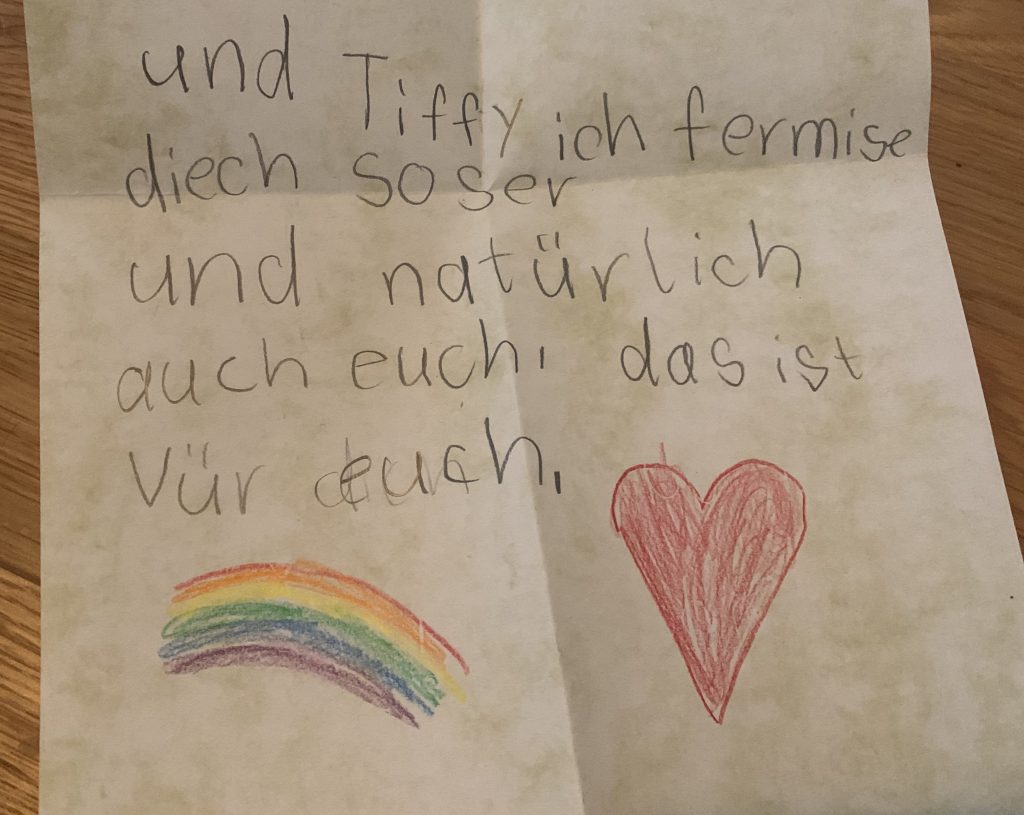 und Tiffy ich fermise
diech soser
und natürlich
auch euch, das ist
Vür euch,